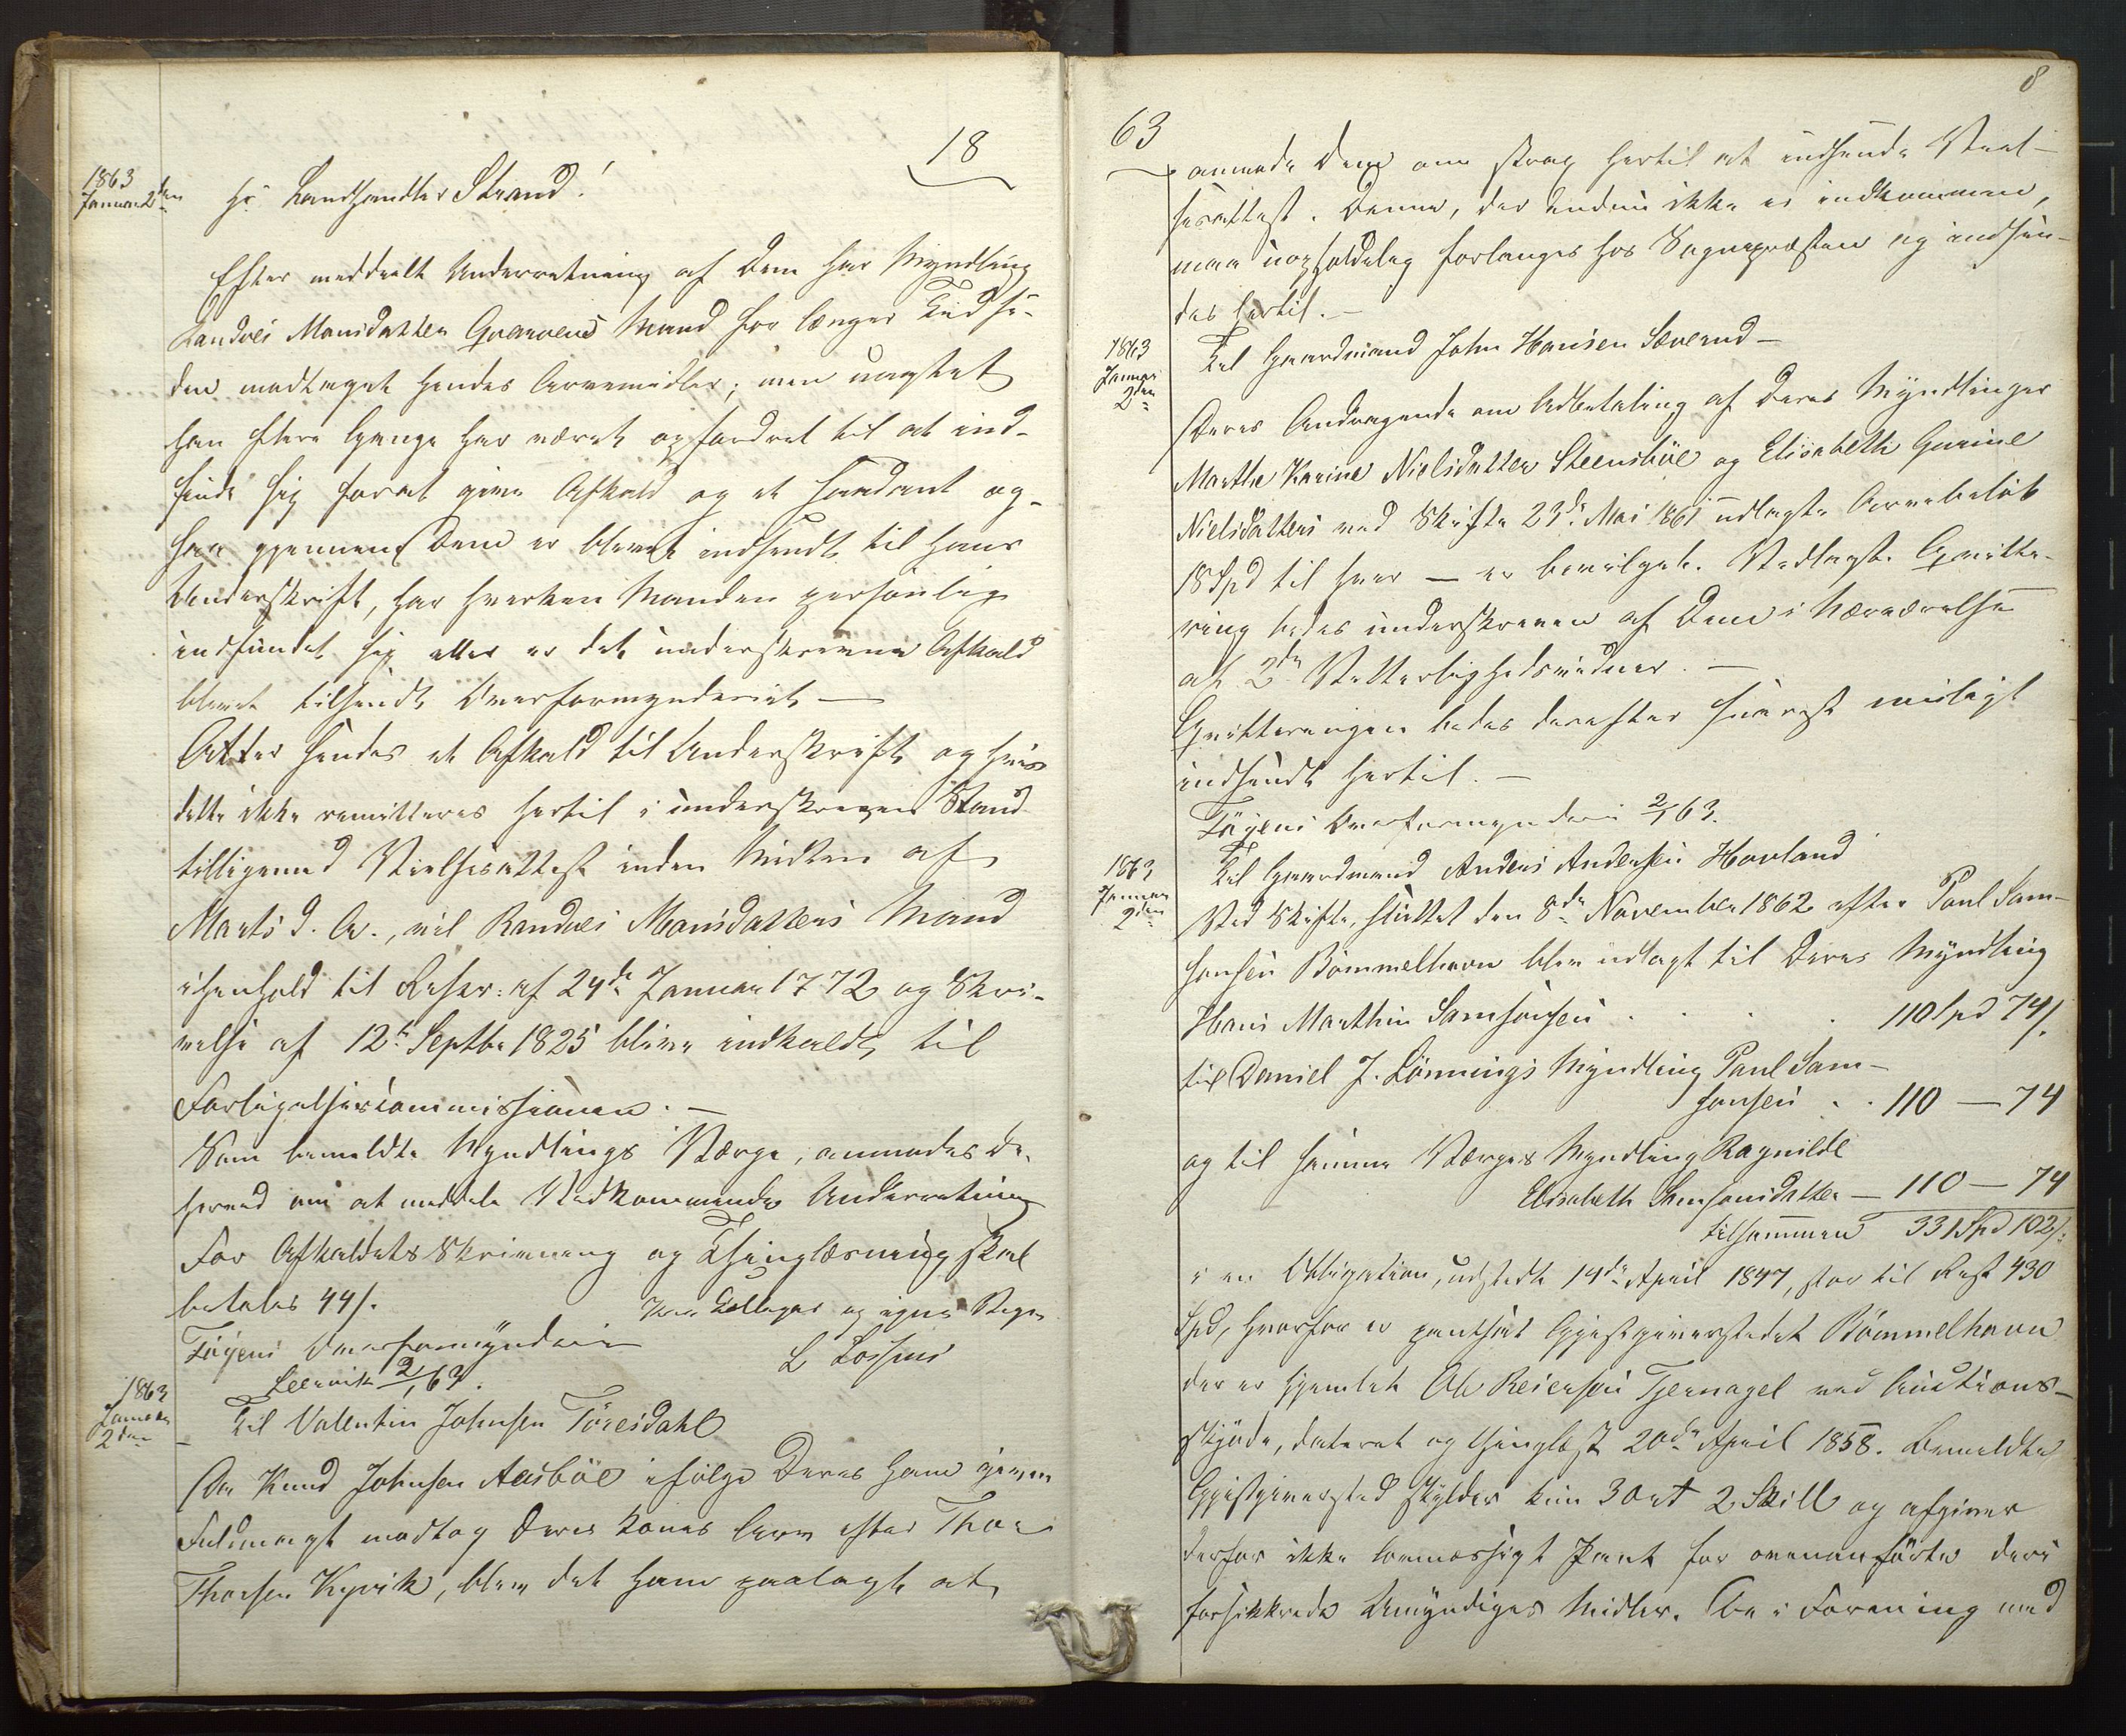 18
1863
Januar 2den
Hr Landhandler Strand!
Efter meddeelt Underretning af Dem har Myndling
Randvei Monsdatter Qvarvens Mand for længer Tid si-
den modtaget hendes Arvemidler; men uagtet
han flere Gange har været opfordret til at ind-
finde sig forat give Afkald og et saadant og-
saa gjennem Dem er blevet indsendt til hans
Underskrift, har hverken Manden personlig
indfundet sig eller er det underskrevne Afkald
blevet tilsendt Overformynderiet —
Atter sendes et Afkald til Underskrift og hvis
dette ikke remitteres hertil i underskreven Stand
tilligemed Vielsesattest inden Midten af
Marts d. A., vil Randvei Monsdatters Mand
i Henhold til Reskr: af 24de Januar 1772 og Skri-
velse af 12te Septbr 1825 blive indkaldt til
Forligelsescommissionen. —
Som bemeldte Myndlings Værge, anmodes De
herved om at meddele Vedkommende Underretning
For Afkaldets Skrivning og Thinglæsning skal
betales 44 s.
Föyens Overformynderi
Leervik 2/1 63.
Paa Collegas og egne Vegne
L Lossius
1863
Januar
2den
Til Valentin Johnsen Töresdahl
Da Knud Johnsen Aasböe ifölge Deres ham given
Fuldmagt modtog Deres Kones Arv efter Thor
Thorsen Kyvik, blev det ham paalagt at
8
63
anmode Dem om strax hertil at indsende Viel-
sesattest. Denne, der endnu ikke er indkommen,
maa uopholdelig forlanges hos Sognepræsten og indsen-
des hertil. —
1863
Januar
2den
Til Gaardmand John Hansen Særvand —
Deres Andragende om Udbetaling af Deres Myndlinger
Marthe Karine Nielsdatter Steensböe og Elisabeth Gurine
Nielsdatters ved Skifte 23de Mai 1861 udlagte Arvebelöb
18 Spd til hver — er bevilget. Vedlagte Qvitte-
ring bedes underskreven af Dem i Nærværelse
af 2de Vitterlighedsvidner. —
Qvitteringen bedes derefter snarest muligt
indsendt hertil. —
Föyens Overformynderi 2/1 63.
1863
Januar
2den
Til Gaardmand Anders Andersen Hovland
Ved Skifte, sluttet den 8de November 1862 efter Poul Sam-
sonsen Bömmelhavn blev udlagt til Deres Myndling
Hans Marthin Samsonsen . . . . 110 Spd 74 s.
til Daniel J. Lönnings Myndling Paul Sam-
sonsen . . 110 — 74
og til samme Værges Myndling Ragnilde
Elisabeth Samsonsdatter — 110 — 74
tilsammen 331 Spd 102 s.
i en Obligation, udstedt 14de April 1847, stor til Rest 430
Spd, hvorfor er pantsat Gjestgiverstedet Bömmelhavn
der er hjemlet Ole Reiersen Tjernagel ved Auctions-
skjöde, dateret og thinglæst 20de April 1858. Bemeldte
Gjestgiversted skylder kun 3 Ort 2 Skill og afgiver
derfor ikke lovmæssigt Pant for ovenanförte deri
forsikkrede Umyndiges Midler. Da i Forening med